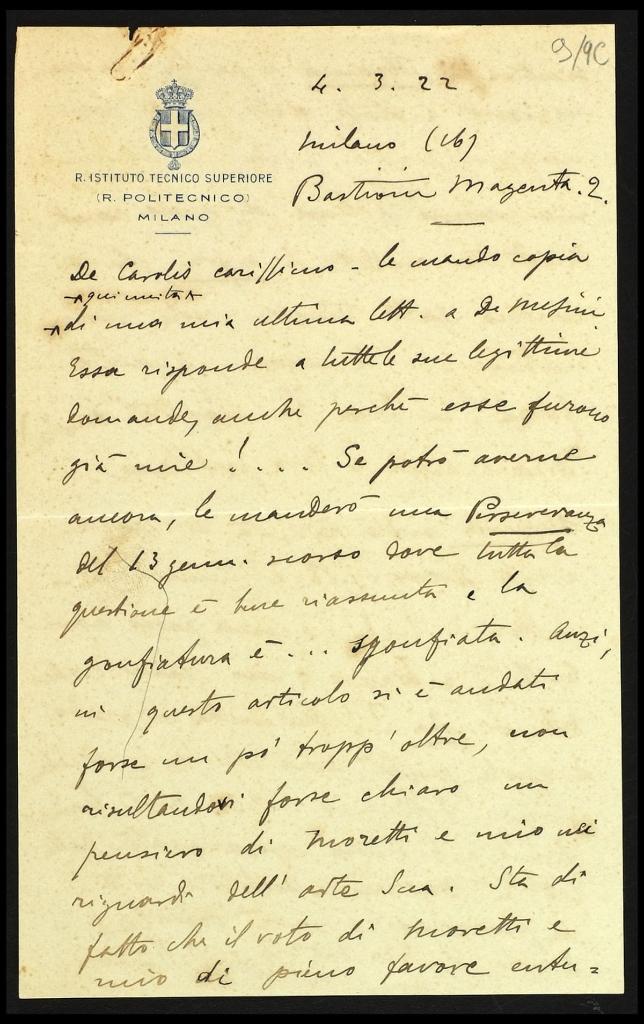 9/9C
4. 3. 22
R. ISTITUTO TECNICO SUPERIORE
(R. POLITECNICO)
MILANO
Milano (16)
Bastioni Magenta. 2.
De Carolis carissimo - le mando copia
qui unita
di una mia ultima lett. a De
Essa risponde a tutte le sue legittime
domande, anche perchè esse furono
già mie ! . . . Se potrò averne
ancora, le manderò una Perseveranza
del 13 genn. scorso dove tutta la
questione è bene riassunta e la
gonfiatura è . . . sgonfiata. Anzi,
in questo articolo si è andati
forse un po' tropp' oltre, non
risultandovi forse chiaro un
pensiero di Moretti e mio nei
riguardi dell' arte Sua. Sta di
fatto che il voto di Moretti e
mio di pieno favore entu=